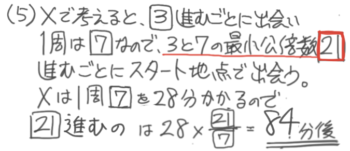 (5) Xで考えると、3進むごとに出会い
1周は7なので、3と7の最小公倍数21
進むごとにスタート地点で出会う。
Xは1周7を28分かかるので
21進むのは28×21/7=84分後